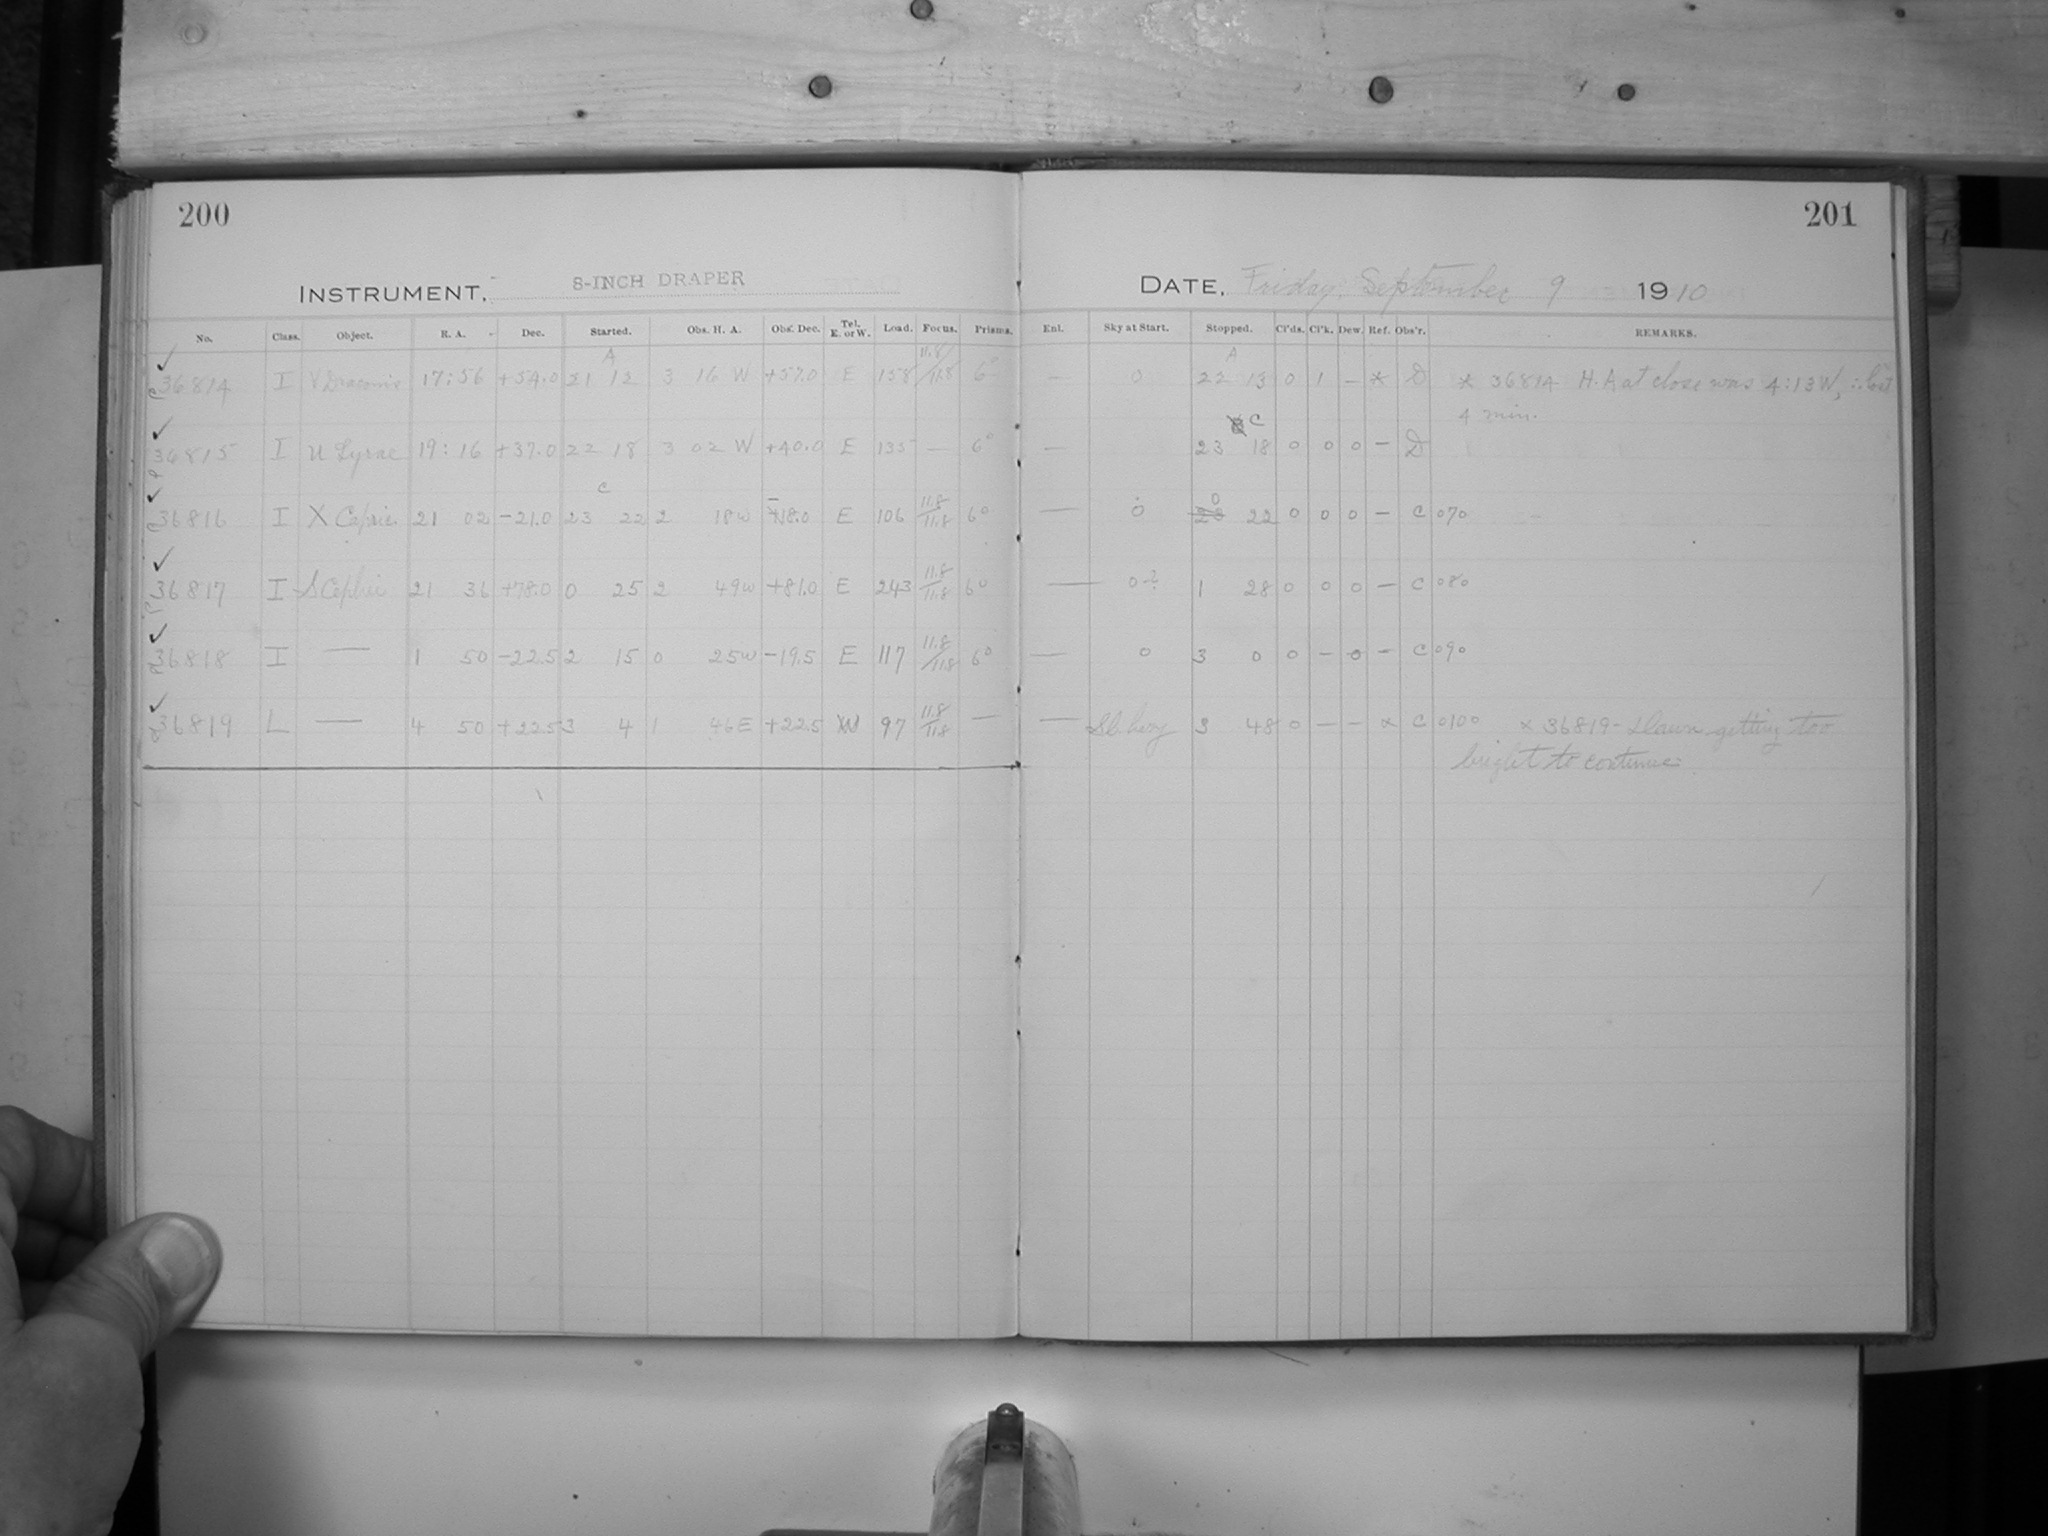 200
201
INSTRUMENT, 8-INCH DRAPER
DATE, Friday, September 9 1910
No. Class. Object. R. A. Dec. Started. Obs. H. A. Obs. Dec. Tel. E. or W. Load. Focus. Prisms. Enl. Sky at Start. Stopped. Cl'ds. Cl'k. Dew. Ref. Obs'r. REMARKS.
A 11.8 A
36814 I Draconis 17:56 +54.0 21 12 3 16 W +57.0 E 158 /11.8 6° — 0 22 13 0 1 — * D * 36814 H.A at close was 4:13 W, ∴ lost
4 min.
C
36815 I U Lyrae 19:16 +37.0 22 18 3 02 W +40.0 E 135 — 6° — 23 18 0 0 0 — D
C
36816 I X Capric. 21 02 -21.0 23 22 2 18W -18.0 E 106 11.8/11.8 6° — 0 0 22 0 0 0 — C 070
36817 I S Cephei 21 36 +78.0 0 25 2 49W +81.0 E 243 11.8/11.8 6° — 0-? 1 28 0 0 0 — C 080
36818 I — 1 50 -22.5 2 15 0 25W -19.5 E 117 11.8/11.8 6° — 0 3 0 0 — 0 — C 090
36819 L — 4 50 +22.5 3 4 1 46E +22.5 W 97 11.8/11.8 — — Sl. hazy 3 48 0 — — × C 0100 × 36819 - Dawn getting too
bright to continue.